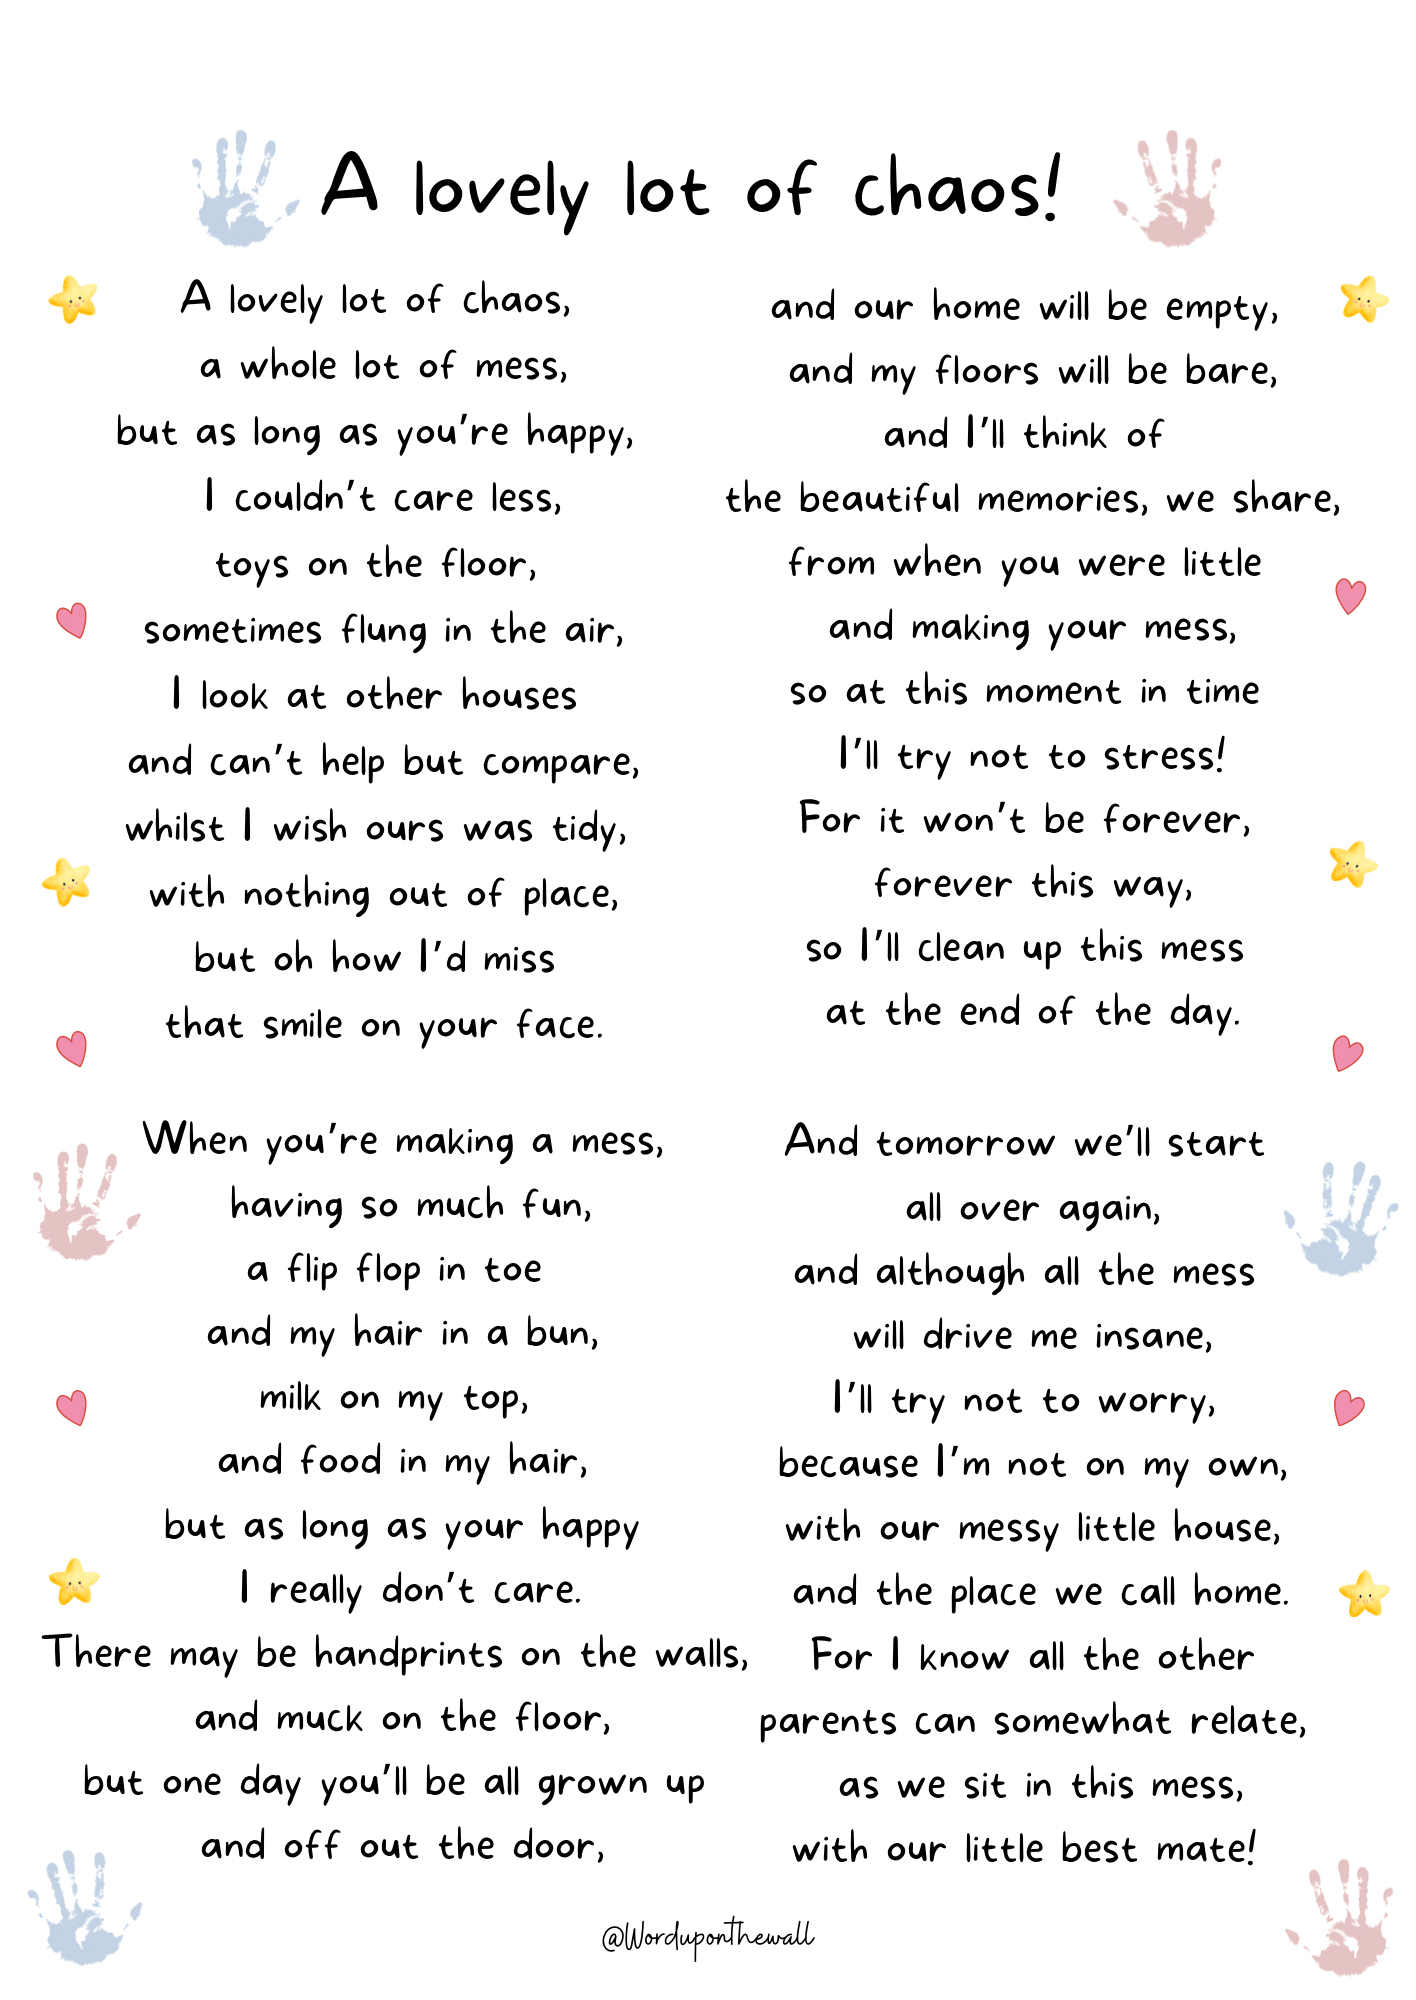 A lovely lot of chaos!
A lovely lot of chaos,
a whole lot of mess,
but as long as you're happy,
I couldn't care less,
toys on the floor,
sometimes flung in the air,
I look at other houses
and can't help but compare,
whilst I wish ours was tidy,
with nothing out of place,
but oh how I'd miss
that smile on your face.
When you're making a mess,
having so much fun,
a flip flop in toe
and my hair in a bun,
milk on my top,
and food in my hair,
but as long as your happy
I really don't care.
There may be handprints on the walls,
and muck on the floor,
but one day you'll be all grown up
and off out the door,
and our home will be empty,
and my floors will be bare,
and I'll think of
the beautiful memories, we share,
from when you were little
and making your mess,
so at this moment in time
I'll try not to stress!
For it won't be forever,
forever this way,
so I'll clean up this mess
at the end of the day.
And tomorrow we'll start
all over again,
and although all the mess
will drive me insane,
I'll try not to worry,
because I'm not on my own,
with our messy little house,
and the place we call home.
For I know all the other
parents can somewhat relate,
as we sit in this mess,
with our little best mate!
@Worduponthewall